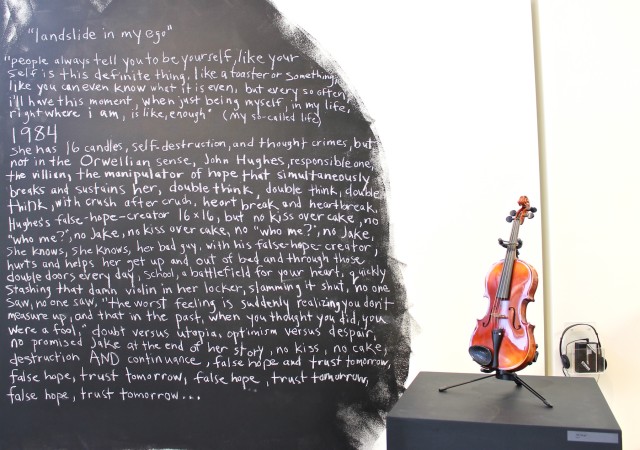 "landslide in my ego"
"people always tell you to be yourself, like your
self is this definite thing, like a toaster or something,
like you can even know what it is even, but every so often
i'll have this moment, when just being myself, in my life,
right where i am, is like, enough" (my so-called life)
1984
She has 16 candles, self-destruction, and thought crimes, but
not in the Orwellian sense, John Hughes, responsible one,
the villian, the manipulator of hope that simultaneously
breaks and sustains her, double think, double think, double
think, with crush after crush, heart break and heartbreak,
Hughes's false-hope-creator 16x16, but no kiss over cake, no
"who me?", no Jake, no kiss over cake, no "who me?", no Jake,
She knows, she knows, her bad guy, with his false-hope-creator,
hurts and helps her get up and out of bed and through those
double doors every day, school, a battlefield for your heart, quickly
stashing that damn violin in her locker, slamming it shut, no one
saw, no one saw, "the worst feeling is suddenly realizing you don't
measure up, and that in the past, when you thought you did, you
were a fool," doubt versus utopia, optimism versus despair,
no promised Jake at the end of her story, no kiss, no cake,
destruction AND continuance, false hope and trust tomorrow,
false hope, trust tomorrow, false hope, trust tomorrow,
false hope, trust tomorrow...